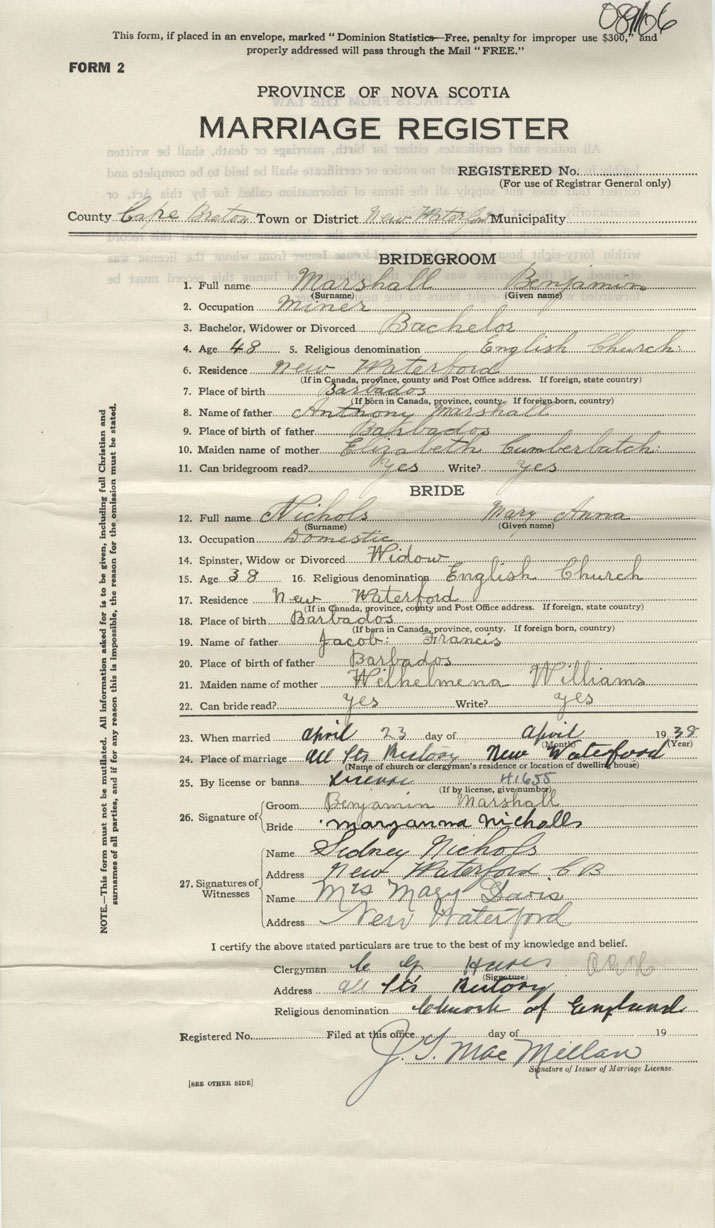 This form, if placed in an envelope, marked "Dominion Statistics—Free, penalty for improper use $300," and
properly addressed will pass through the Mail "FREE."
FORM 2
PROVINCE OF NOVA SCOTIA
MARRIAGE REGISTER
REGISTERED No.
(For use of Registrar General only)
County Cape Breton Town or District New Waterford Municipality
BRIDEGROOM
1. Full name Marshall Benjamin
(Surname) (Given name)
2. Occupation Miner
3. Bachelor, Widower or Divorced Bachelor
4. Age 48 5. Religious denomination English Church
6. Residence New Waterford
(If in Canada, province, county and Post Office address. If foreign, state country)
7. Place of birth Barbados
(If born in Canada, province, county. If foreign born, country)
8. Name of father Anthony Marshall
9. Place of birth of father Barbados
10. Maiden name of mother Elizabeth Cumberbatch
11. Can bridegroom read? yes Write? yes
BRIDE
12. Full name Nichols Mary Anna
(Surname) (Given name)
13. Occupation Domestic
14. Spinster, Widow or Divorced Widow
15. Age 38 16. Religious denomination English Church
17. Residence New Waterford
(If in Canada, province, county and Post Office address. If foreign, state country)
18. Place of birth Barbados
(If born in Canada, province, county. If foreign born, country)
19. Name of father Jacob: Francis
20. Place of birth of father Barbados
21. Maiden name of mother Wilhelmena Williams
22. Can bride read? yes Write? yes
23. When married April 23 day of April 1938
(Month) (Year)
24. Place of marriage All Sts Rectory New Waterford
(Name of church or clergyman's residence or location of dwelling house)
25. By license or banns License 41655
(If by license, give number)
26. Signature of Groom Benjamin Marshall
Bride maryanna nicholls
27. Signatures of Witnesses
Name Sidney Nichols
Address New Waterford C B
Name Mrs Mary Davis
Address New Waterford
I certify the above stated particulars are true to the best of my knowledge and belief.
Clergyman
(Signature)
Address All Sts Rectory
Religious denomination Church of England
Registered No. Filed at this office day of 19
J. S. MacMillan
Signature of Issuer of Marriage License.
[SEE OTHER SIDE]
NOTE.—This form must not be mutilated. All information asked for is to be given, including full Christian and
surnames of all parties, and if for any reason this is impossible, the reason for the omission must be stated.